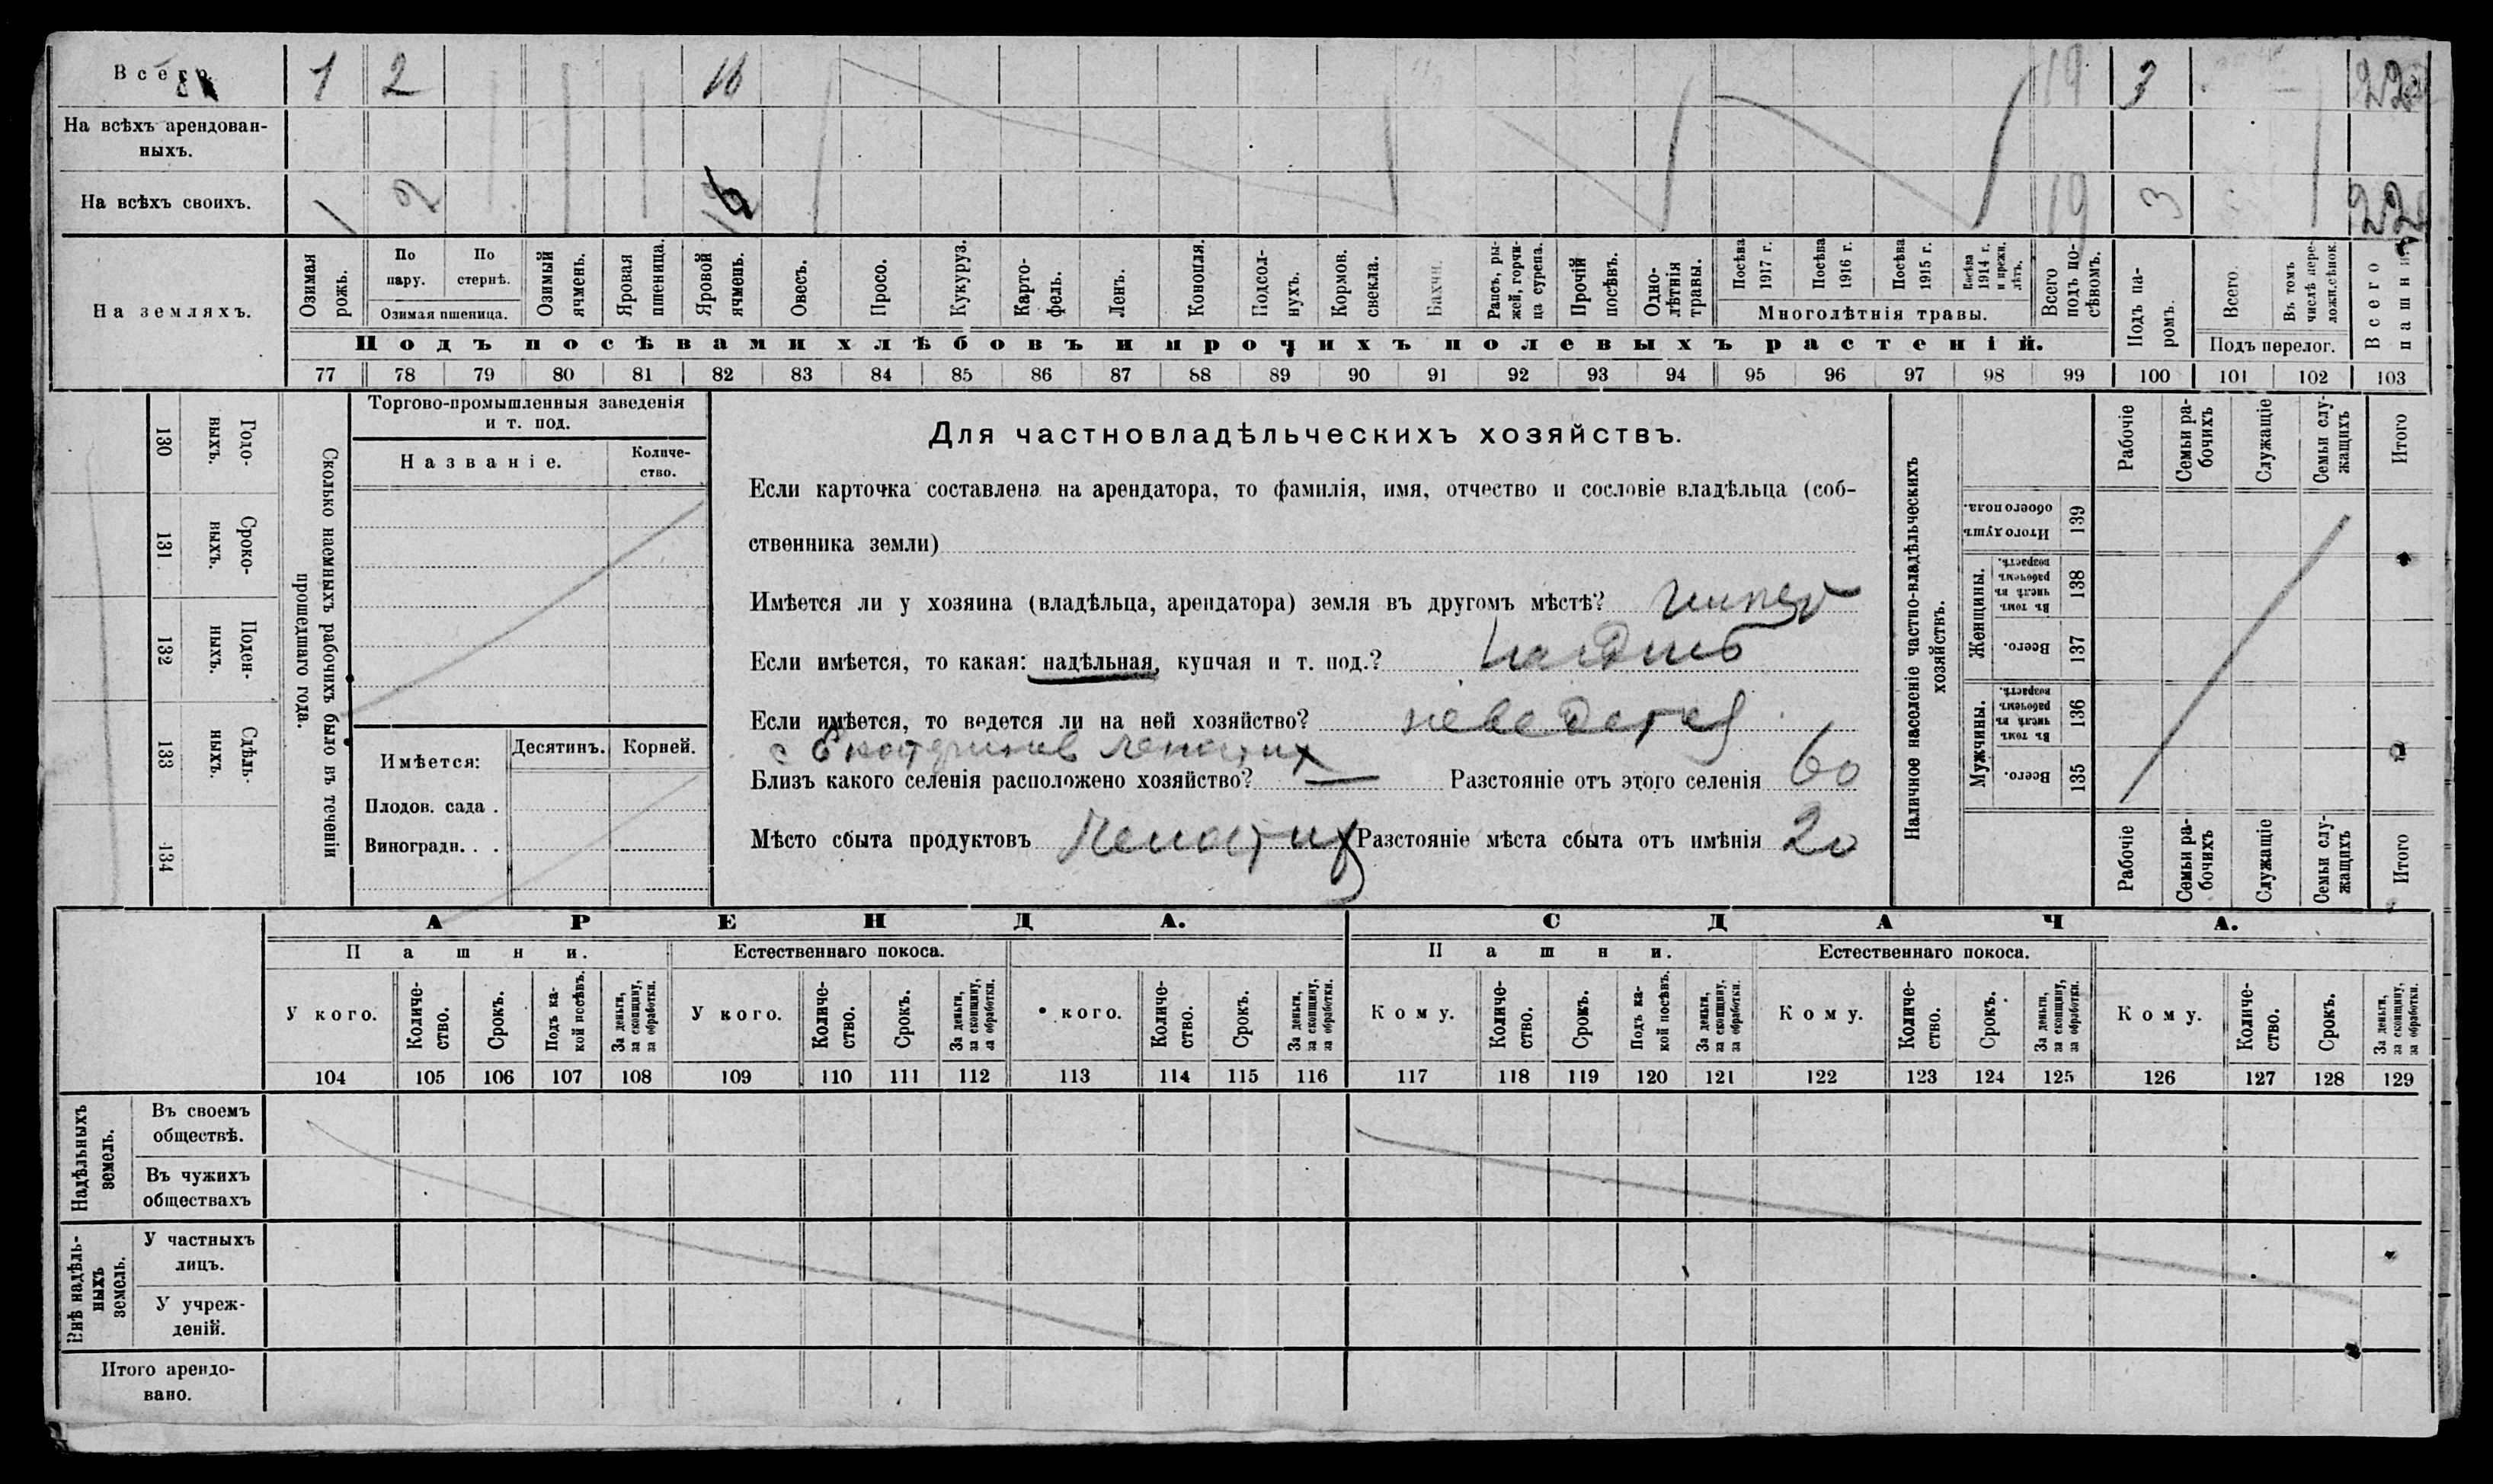 Всего. 1 2 16 19 3 22
На всѣхъ арендован-
ныхъ.
На всѣхъ своихъ. 1 2 19 3 22
На земляхъ.
Озимая рожь.
По пару.
По стернѣ.
Озимая пшеница.
Озимый ячмень.
Яровая пшеница.
Яровой ячмень.
Овесъ.
Просо.
Кукуруз.
Карто-
фель.
Ленъ.
Конопля.
Подсол-
нухъ.
Кормов. свекла.
Бахчи.
Рапсъ, ры-
жей, горчи-
ца сурепа.
Прочій посѣвъ.
Одно-
лѣтнія травы.
Посѣва 1917 г.
Посѣва 1916 г.
Посѣва 1915 г.
Посѣва 1914 г. и прежн. лѣтъ.
Многолѣтнія травы.
Всего подъ по-
сѣвомъ.
Подъ посѣвами хлѣбовъ и прочихъ полевыхъ растеній.
Подъ па-
ромъ.
Всего.
Въ томъ числѣ пере-
ложн.сѣнок.
Подъ перелог.
Всего пашни
77 78 79 80 81 82 83 84 85 86 87 88 89 90 91 92 93 94 95 96 97 98 99 100 101 102 103
Сколько наемныхъ рабочихъ было въ теченіи
прошедшаго года.
Годо-
выхъ.
130
Сроко-
выхъ.
131
Поден-
ныхъ.
132
Сдѣль-
ныхъ.
133
134
Торгово-промышленныя заведенія
и т. под.
Названіе.
Количе-
ство.
Имѣется:
Десятинъ.
Корней.
Плодов. сада .
Виноградн. . .
Для частновладѣльческихъ хозяйствъ.
Если карточка составлена на арендатора, то фамилія, имя, отчество и сословіе владѣльца (соб-
ственника земли)
Имѣется ли у хозяина (владѣльца, арендатора) земля въ другомъ мѣстѣ?
Если имѣется, то какая: надѣльная, купчая и т. под.?
Если имѣется, то ведется ли на ней хозяйство? неведется
Близъ какого селенія расположено хозяйство? Разстояніе отъ этого селенія 60
Мѣсто сбыта продуктовъ Разстояніе мѣста сбыта отъ имѣнія 20
Наличное населеніе частно-владѣльческихъ
хозяйствъ.
Итого душъ обоего пола.
139
Женщины.
Въ томъ числѣ въ рабочемъ возрастѣ.
138
Всего.
137
Мужчины.
Въ томъ числѣ въ рабочемъ возрастѣ.
136
Всего.
135
Рабочіе
Семьи ра-
бочихъ
Служащіе
Семьи слу-
жащихъ
Итого
Рабочіе
Семьи ра-
бочихъ
Служащіе
Семьи слу-
жащихъ
Итого
АРЕНДА. СДАЧА.
Пашни. Естественнаго покоса. Пашни. Естественнаго покоса.
У кого.
Количе-
ство.
Срокъ.
Подъ ка-
кой посѣвъ.
За деньги, за скопщину, за обработки.
У кого.
Количе-
ство.
Срокъ.
За деньги, за скопщину, за обработки.
кого.
Количе-
ство.
Срокъ.
За деньги, за скопщину, за обработки.
Кому.
Количе-
ство.
Срокъ.
Подъ ка-
кой посѣвъ.
За деньги, за скопщину, за обработки.
Кому.
Количе-
ство.
Срокъ.
За деньги, за скопщину, за обработки.
Кому.
Количе-
ство.
Срокъ.
За деньги, за скопщину, за обработки.
104 105 106 107 108 109 110 111 112 113 114 115 116 117 118 119 120 121 122 123 124 125 126 127 128 129
Надѣльныхъ
земель.
Въ своемъ
обществѣ.
Въ чужихъ
обществахъ
Внѣ надѣль-
ныхъ
земель.
У частныхъ
лицъ.
У учреж-
деній.
Итого арендо-
вано.